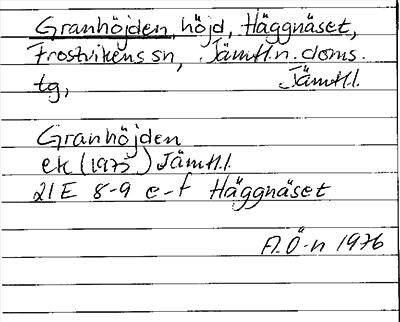 Granhöjden, höjd, Häggnäset,
Frostvikens sn, Jämtl.n. doms.
tg, Jämtl.l.
Granhöjden
ek (1975) Jämtl.l
21 E 8-9 e-f Häggnäset
A.Ö-n 1976